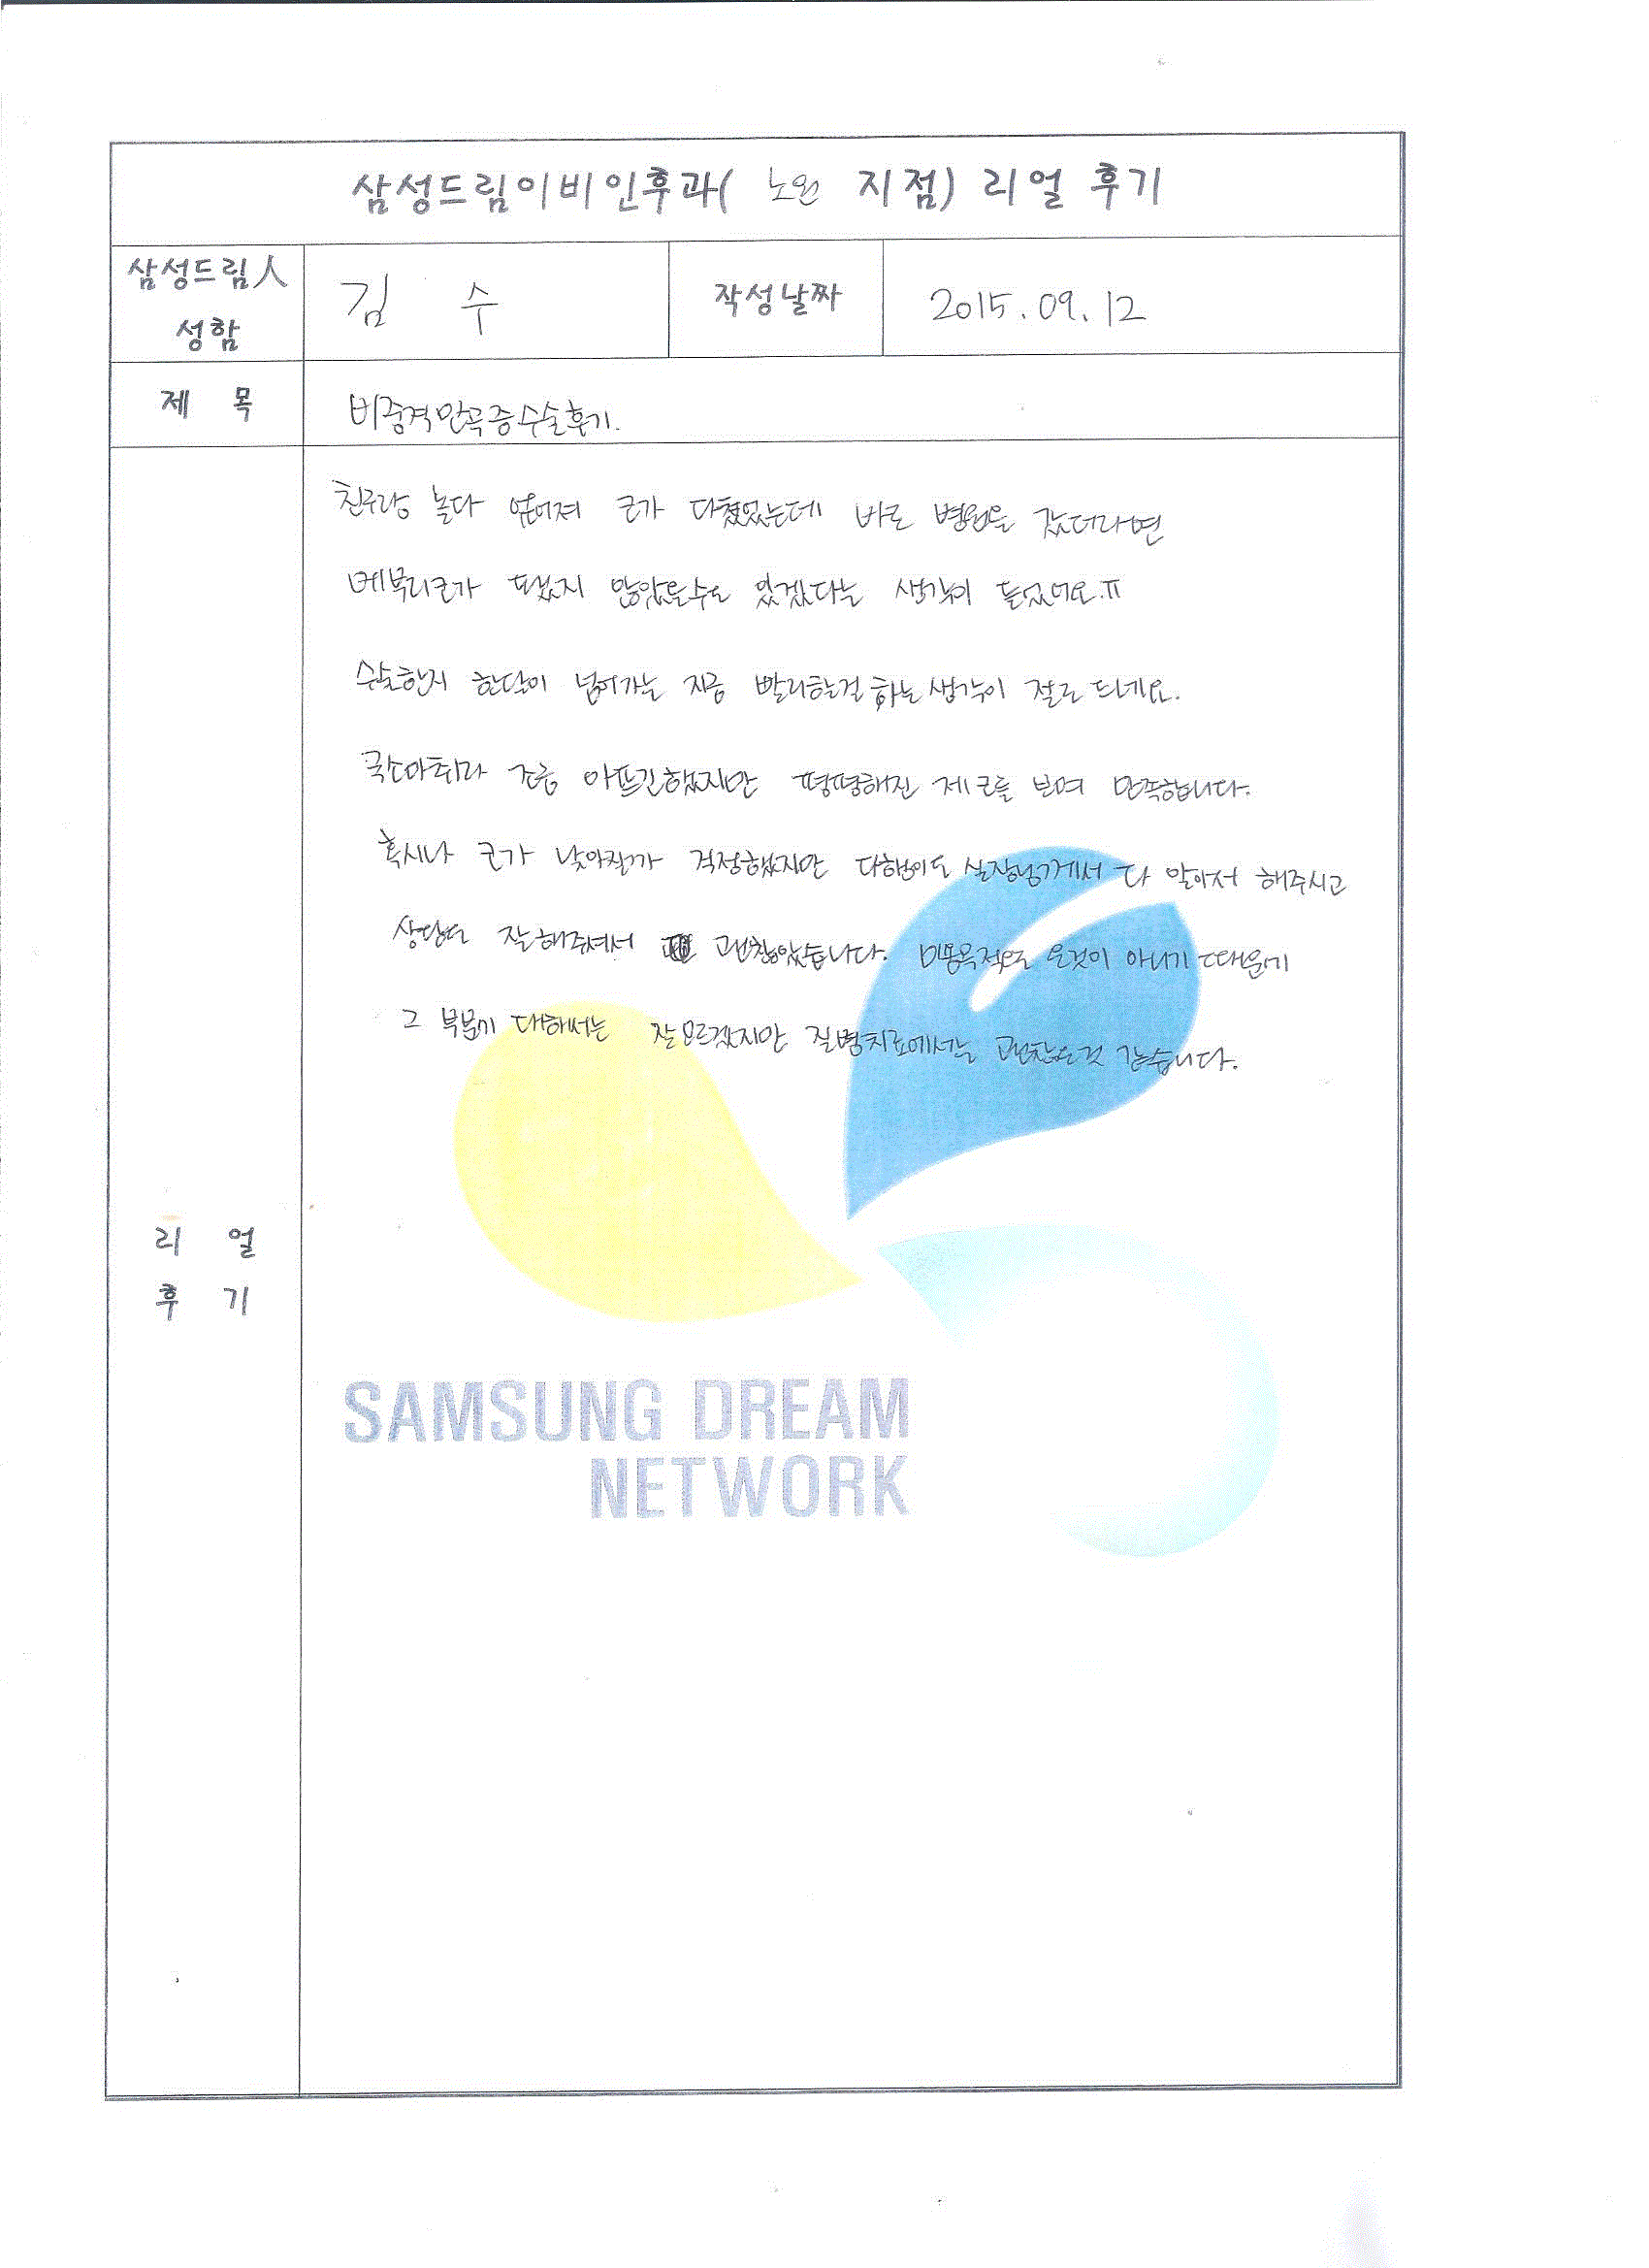 삼성드림이비인후과( 노원 지점) 리얼 후기
삼성드림人
성함
김 수
작성날짜
2015.09.12
제 목
비중격만곡증수술후기.
친구랑 놀다 엎어져 코가 다쳤었는데 바로 병원을 갔더라면
메부리코가 되지 않았을수도 있겠다는 생각이 들었어요.ㅠ
수술한지 한달이 넘어가는 지금 빨리할걸 하는 생각이 절로 드네요.
국소마취라 조금 아프긴했지만 평평해진 제 코를 보며 만족합니다.
혹시나 코가 낮아질까 걱정했지만 다행이도 실장님께서 다 알아서 해주시고
상담도 잘해주셔서 괜찮았습니다. 미용목적으로 온것이 아니기 때문에
그 부분에 대해서는 잘모르겠지만 질병치료에서는 괜찮은것 같습니다.
리 얼
후 기
SAMSUNG DREAM
NETWORK